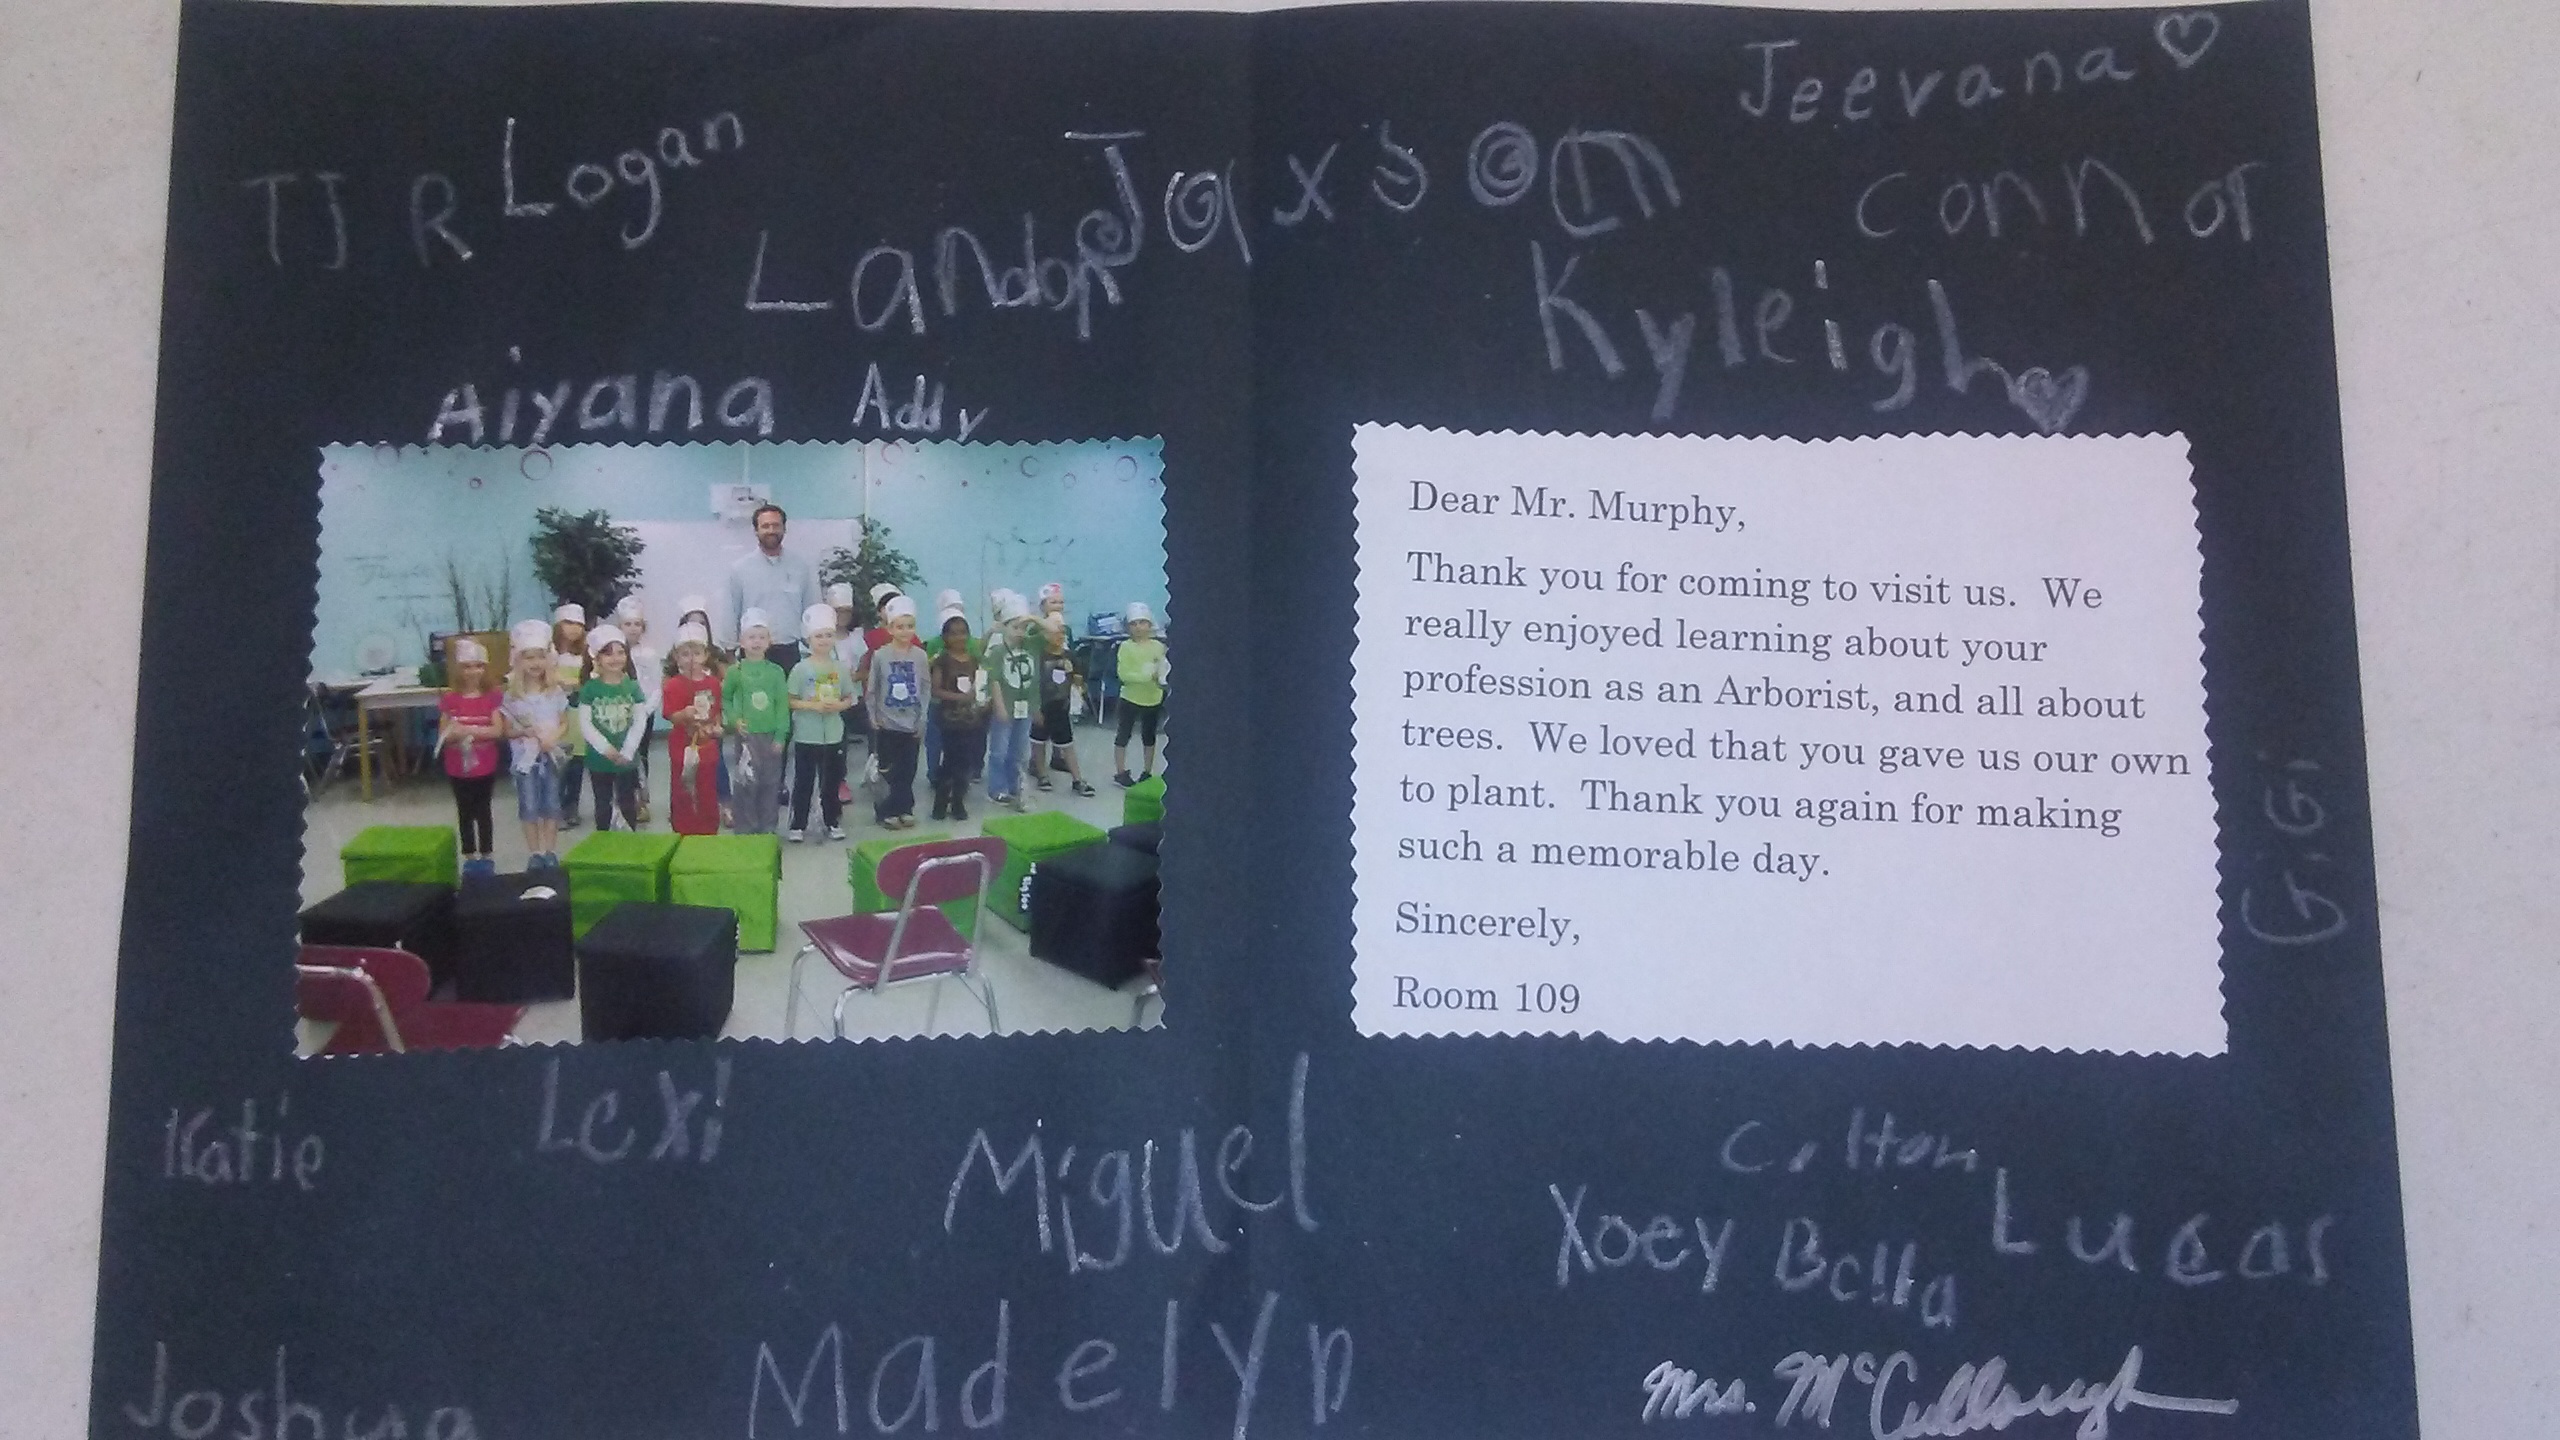 Jeevana
TJ R
Logan
Jaxson
Connor
Landon
Kyleigh
Aiyana
Addy
Dear Mr. Murphy,
Thank you for coming to visit us. We
really enjoyed learning about your
profession as an Arborist, and all about
trees. We loved that you gave us our own
to plant. Thank you again for making
such a memorable day.
Sincerely,
Room 109
GiGi
Katie
Lexi
Miguel
Colton
Xoey
Bella
Lucas
Joshua
Madelyn
Mrs. McCullough